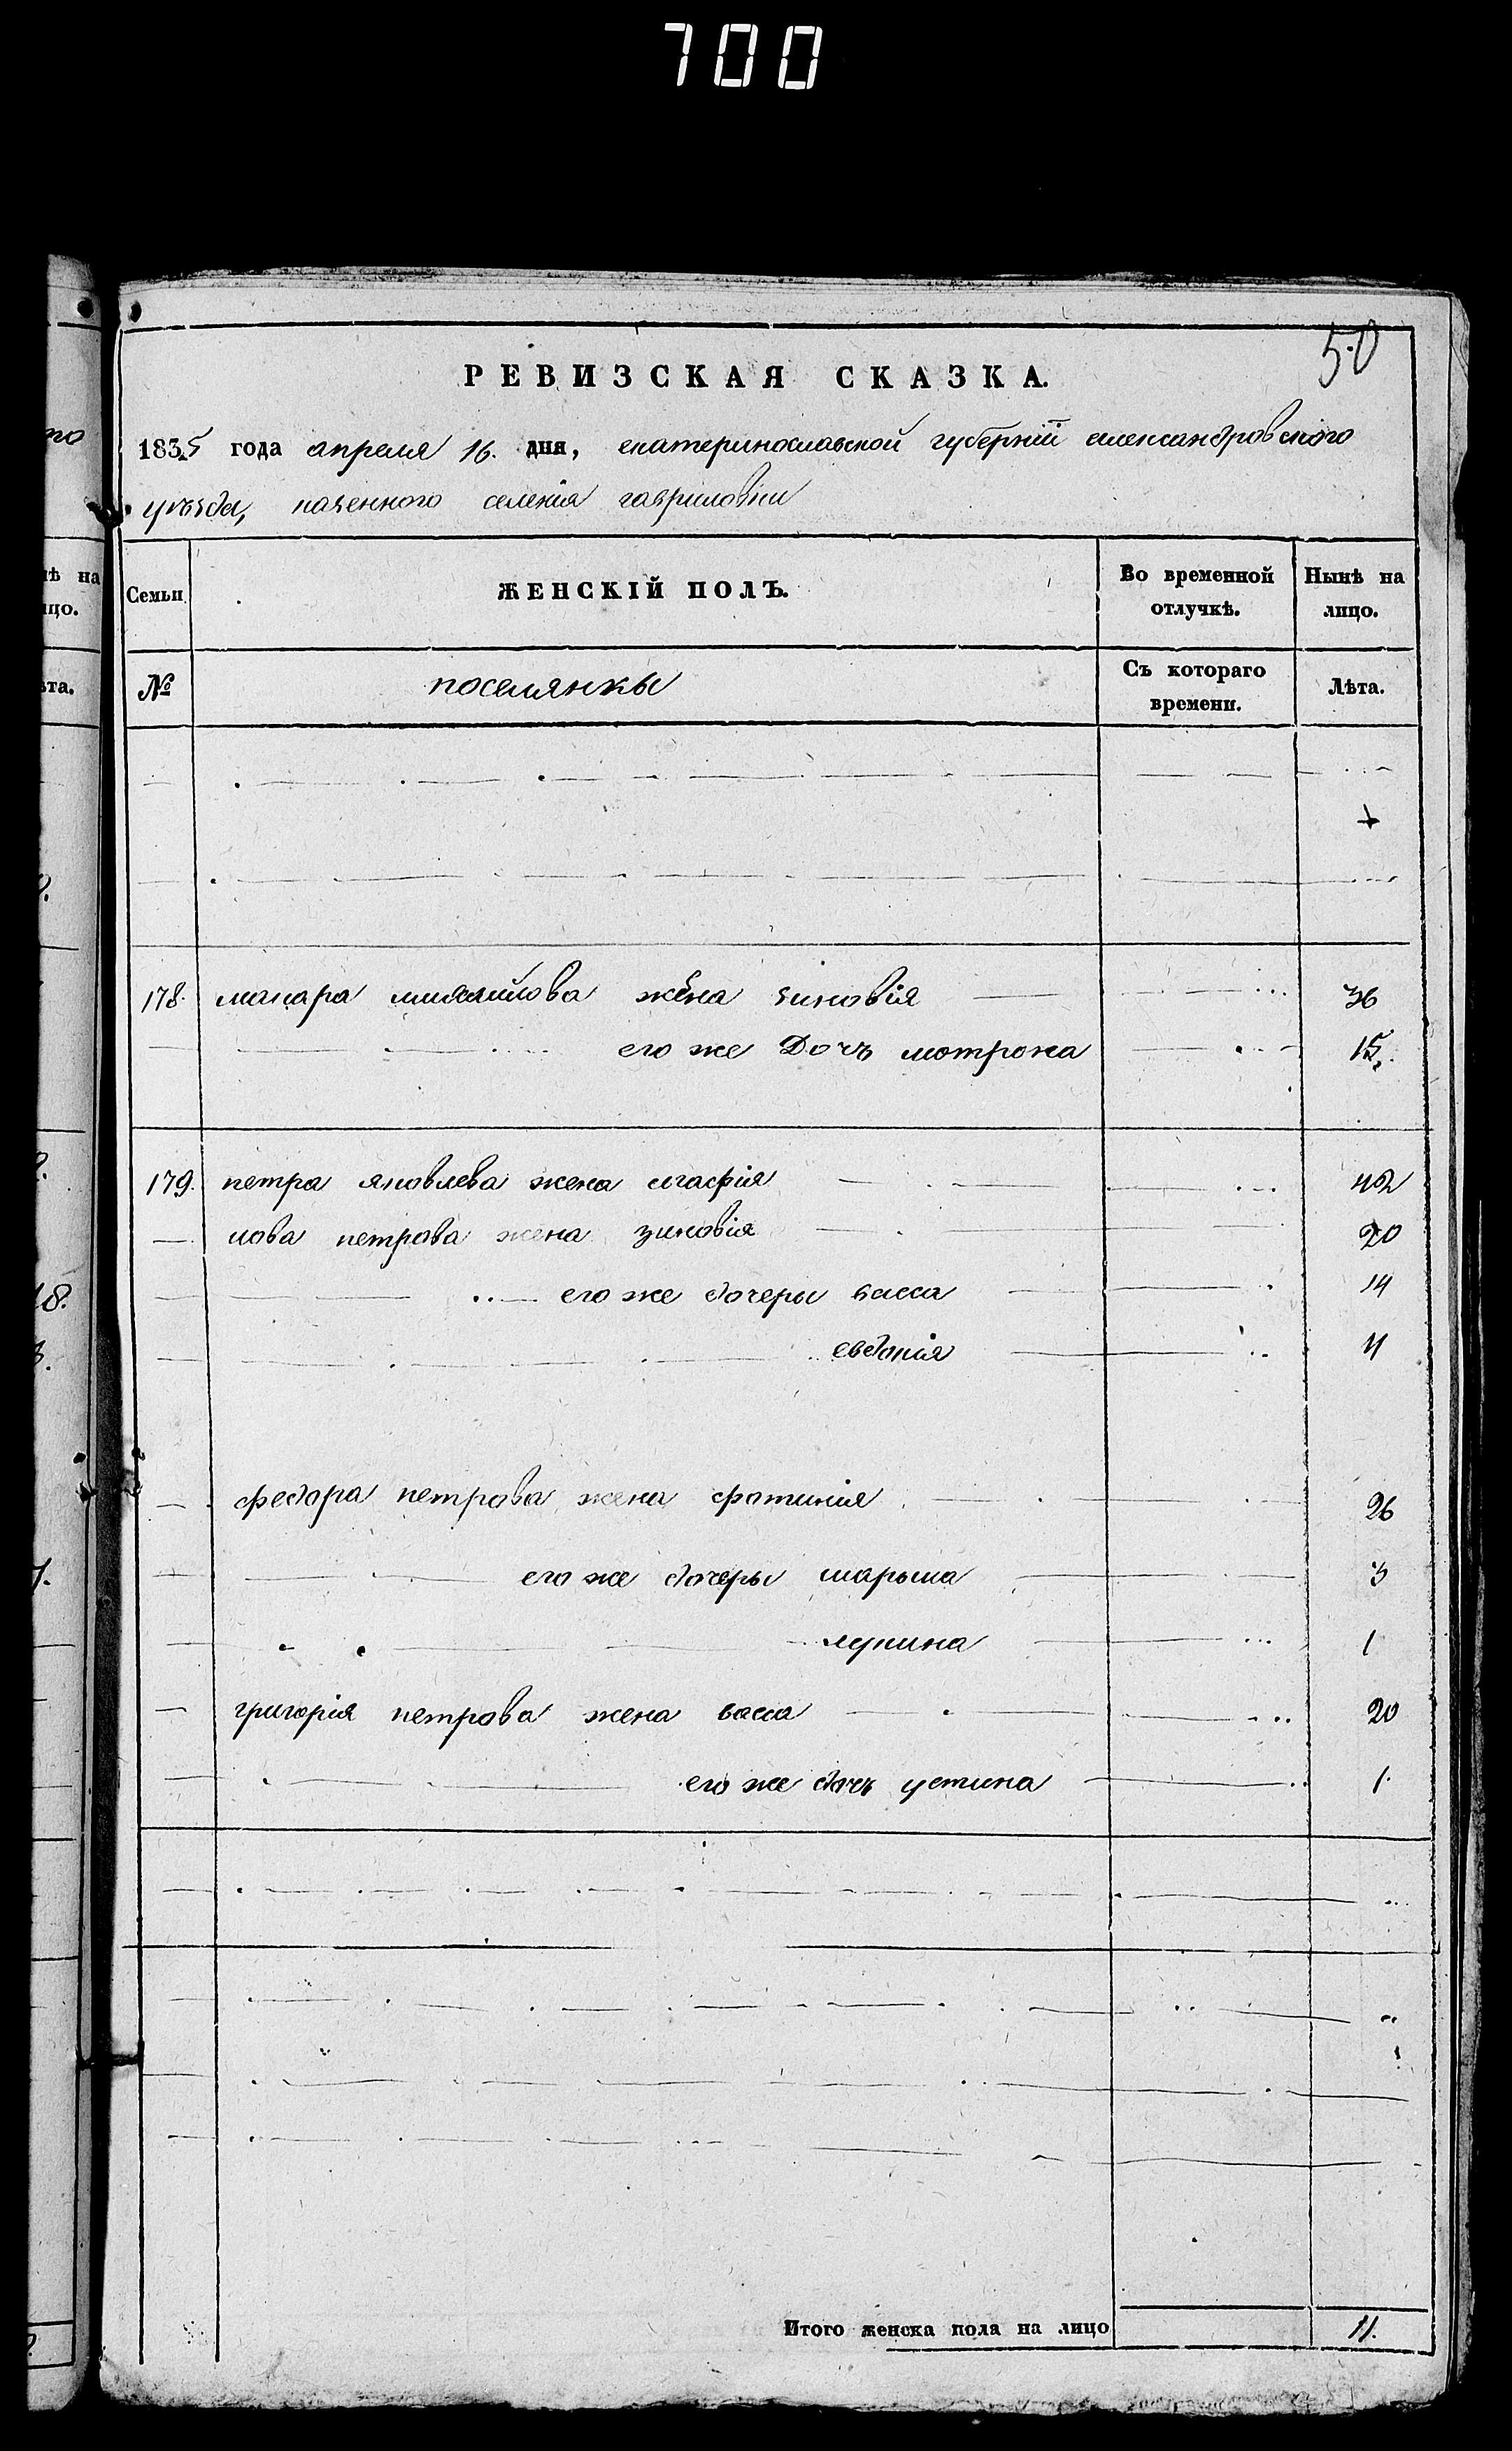 700
50
РЕВИЗСКАЯ СКАЗКА.
1835 года апреля 16. дня, екатеринославской губернии александровского
уѣзда, казенного селения гавриловки
Семьи
ЖЕНСКІЙ ПОЛЪ.
Во временной отлучкѣ.
Нынѣ на лицо.
№
поселянкы
Съ котораго времени.
Лѣта.
178. макара михайлова жена зиновія 36
его же Дочь мотрона 15.
179. петра яковлева жена агафія 42
петрова жена зиновія 20
его же дочеры васса 14
евдокія 11
федора петрова жена фотинія 26
его же дочеры марьма 3
лукина 1
григорія петрова жена васса 20
его же дочь устина 1.
Итого женска пола на лицо 11.